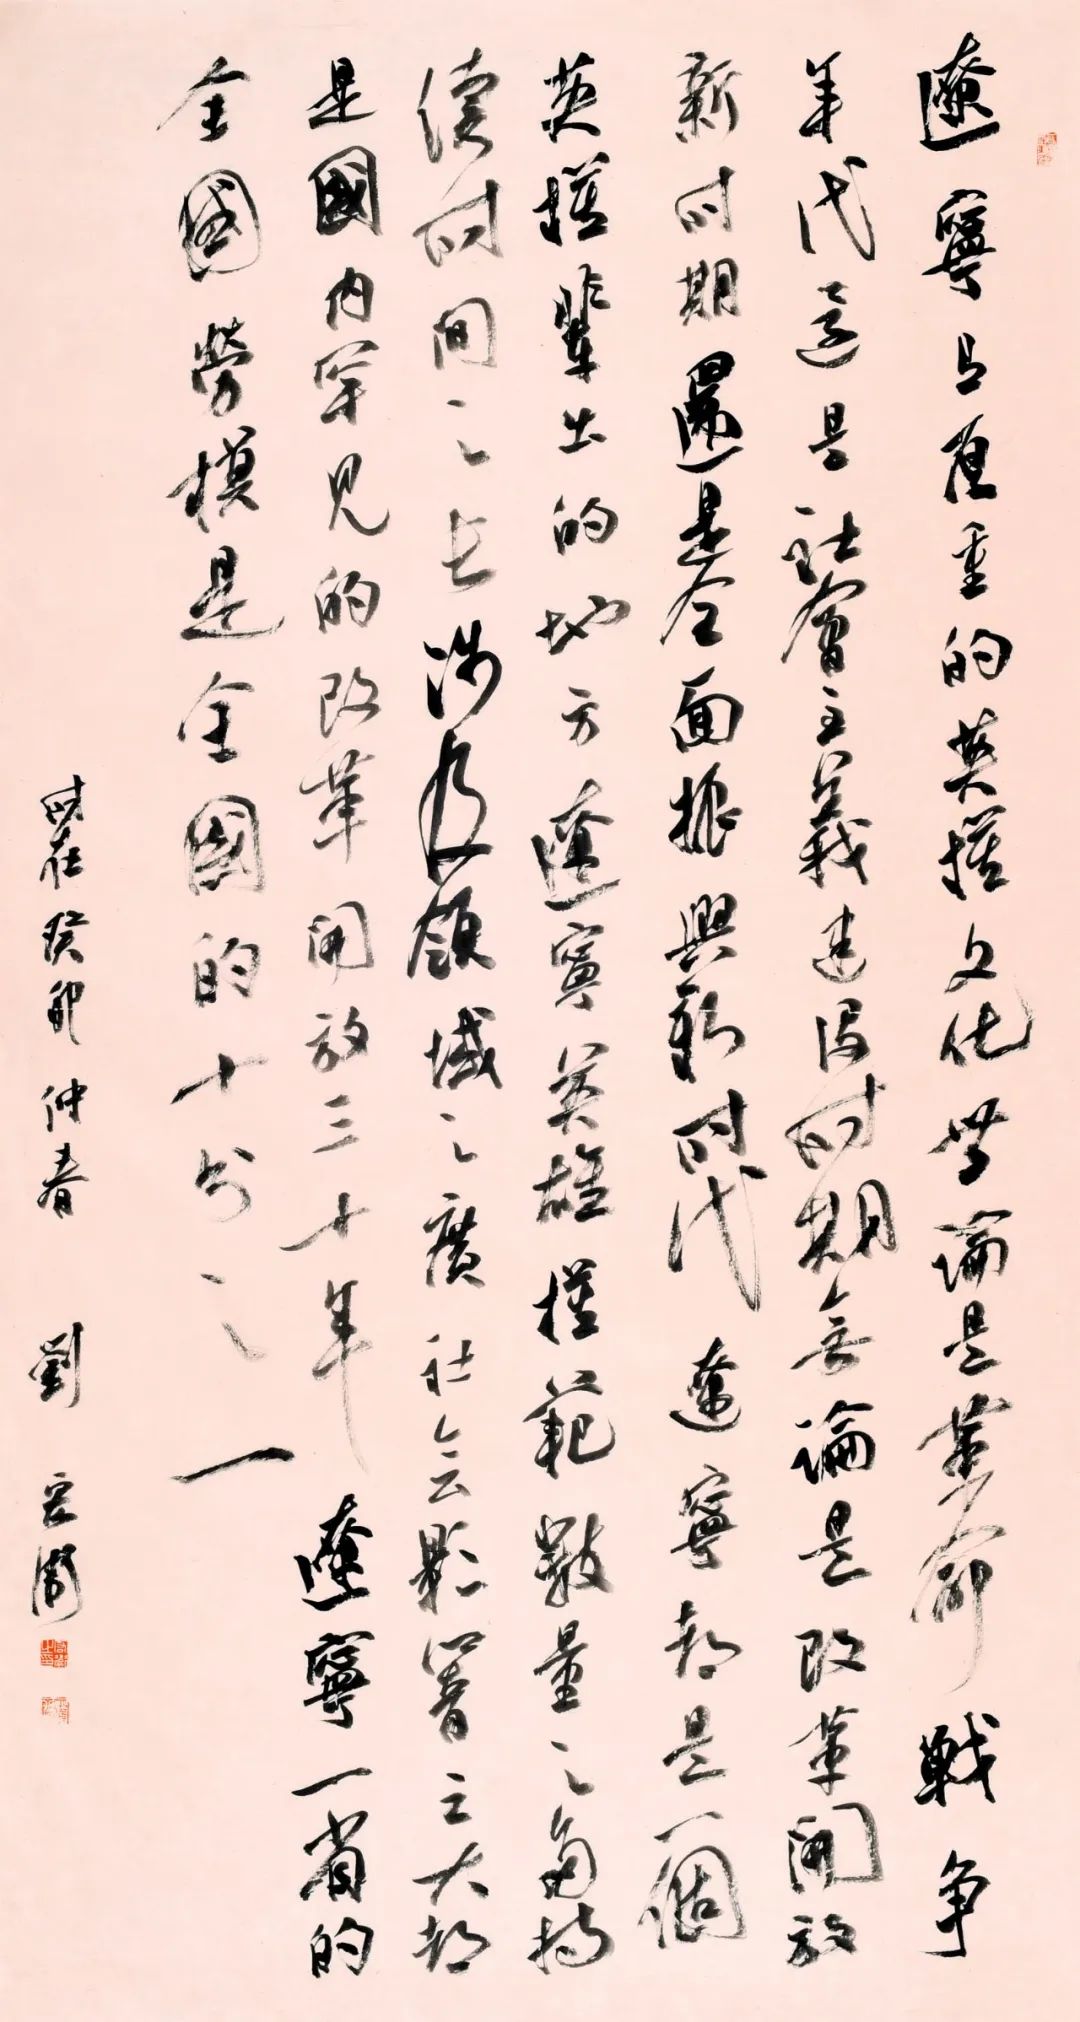 遼寧厚重的英模文化無論是革命戰爭
年代還是社會主義建設時期無論是改革開放
新時期還是全面振興新時代遼寧都是一個
英模輩出的地方遼寧英雄模範數量之多持
續時間之長涉及領域之廣社会影響之大都
是國内罕見的改革開放三十年遼寧一省的
全國勞模是全國的十分之一
時在癸卯仲春 劉